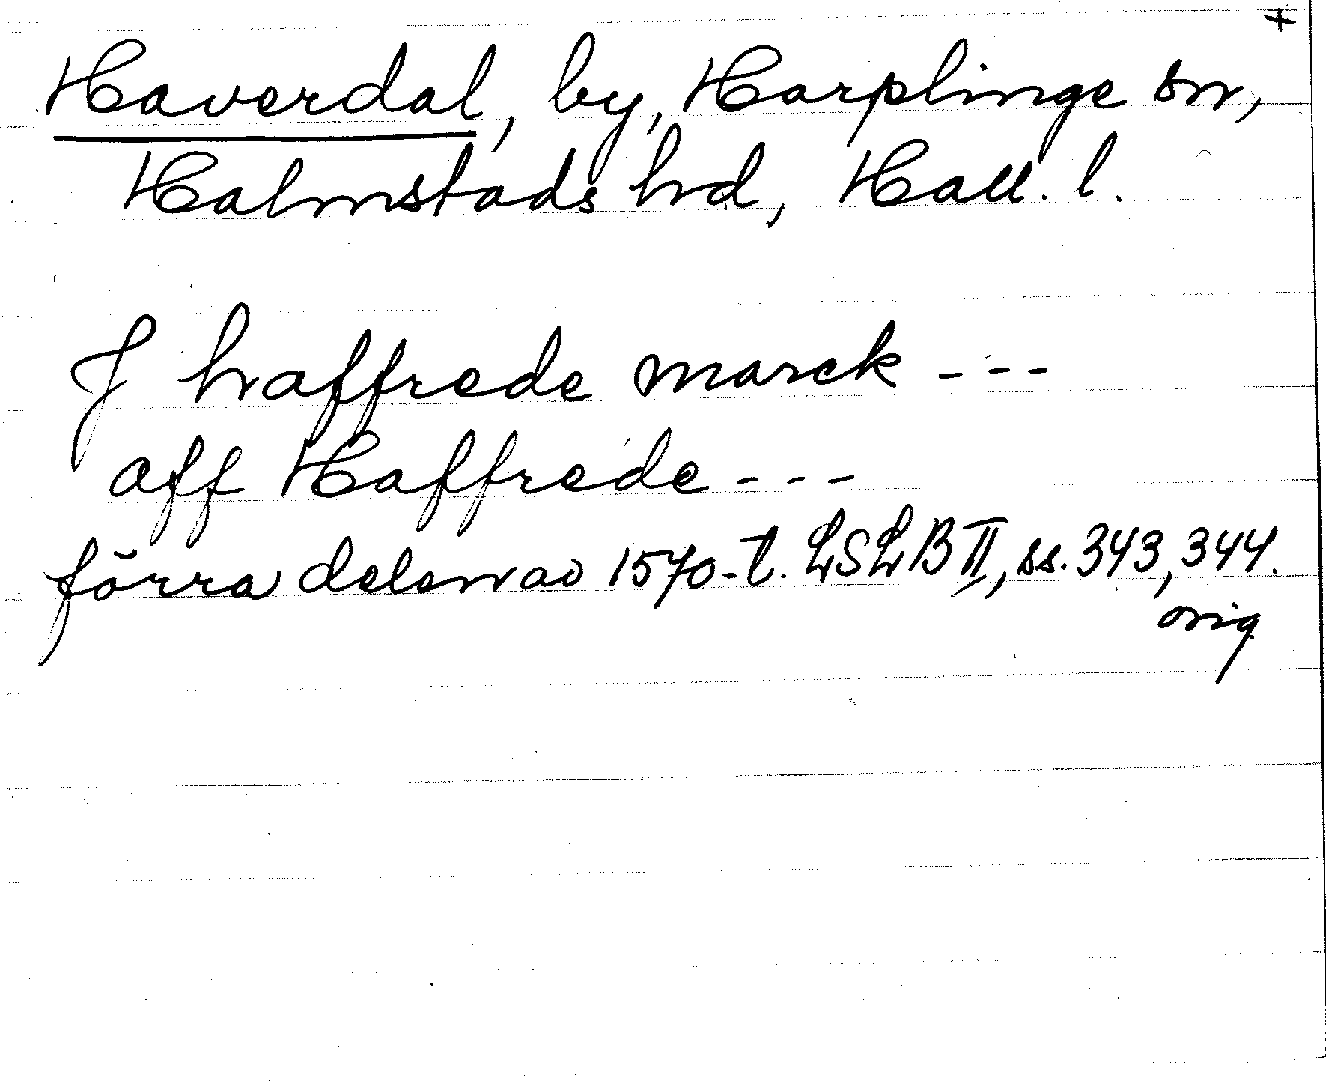 +
Haverdal, by, Harplinge sn,
Halmstads hd, Hall. l.
J haffrede marck ---
aff Haffrede ---
förra delen av 1570-t. LSLB II, ss. 343, 344.
orig